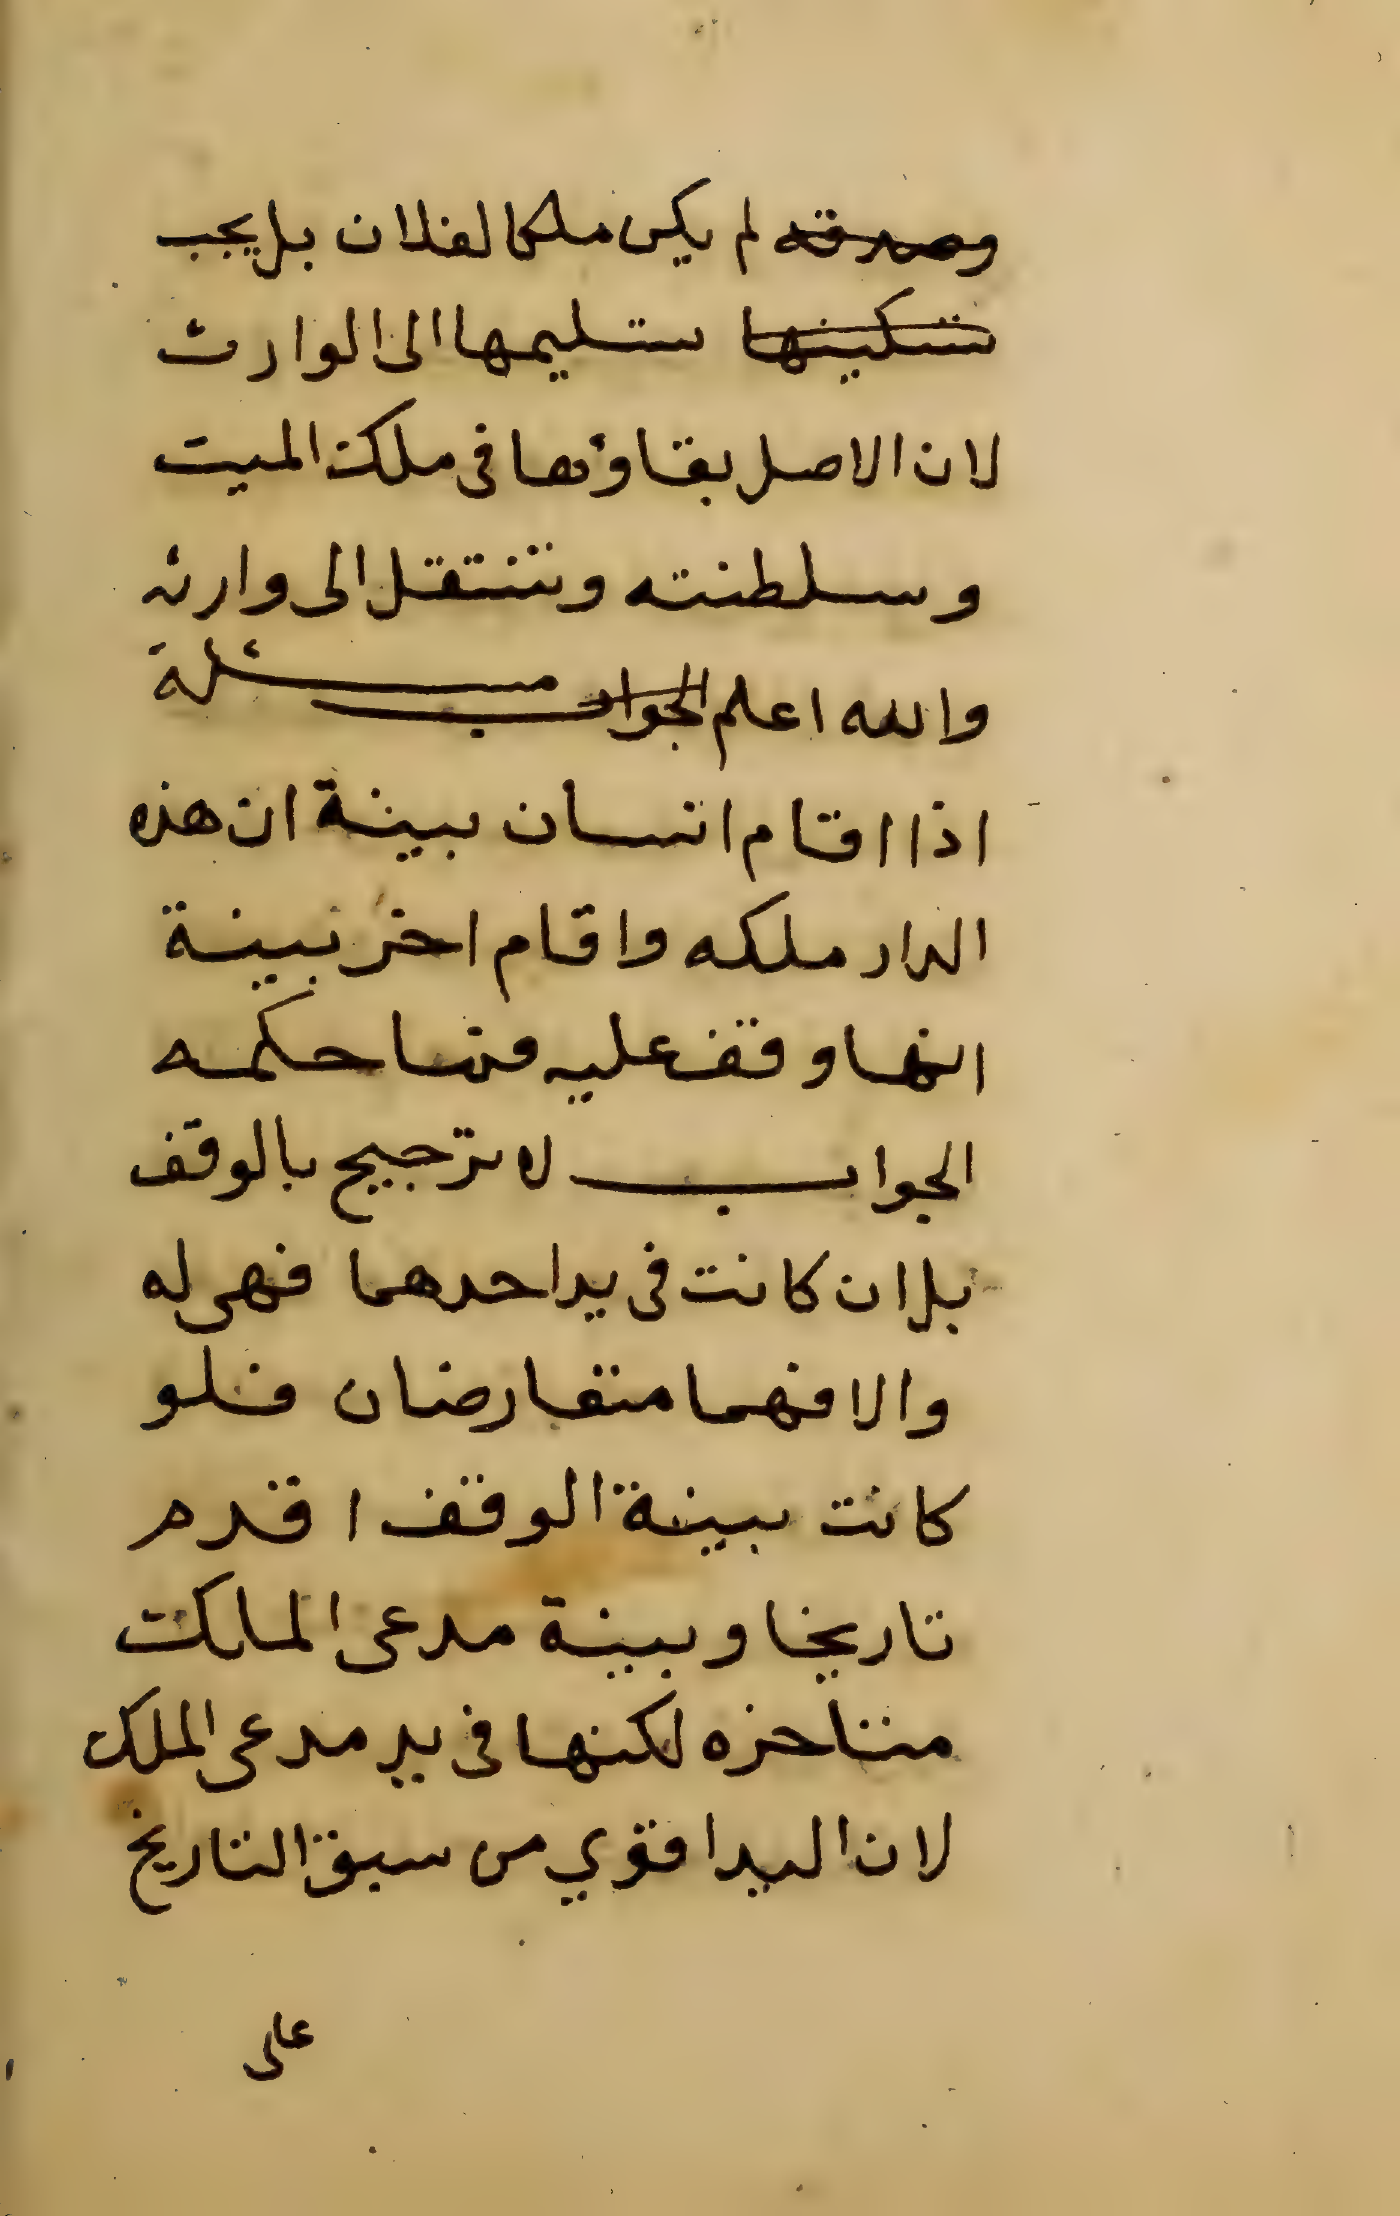 وصدقه لم يكن ملكا لفلان بل يجب
تسكينها تسليمها الى الوارث
لان الاصل بقاؤها في ملك الميت
وسلطنته وتنتقل الى وارثه
والله اعلم الجواب مسئلة
اذا اقام انسان بينة ان هذه
الدار ملكه واقام اخر بينة
انها وقف عليه فما حكمه
الجواب لا ترجيح بالوقف
بل ان كانت في يد احدهما فهي له
والا فهما متعارضان فلو
كانت بينة الوقف اقدم
تاريخا وبينة مدعى المالك
متناخره لكنها في يد مدعى الملك
لان اليد اقوي من سبق التاريخ
على